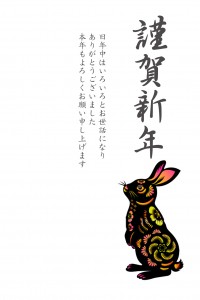 謹賀新年
旧年中はいろいろとお世話になり
ありがとうございました
本年もよろしくお願い申し上げます